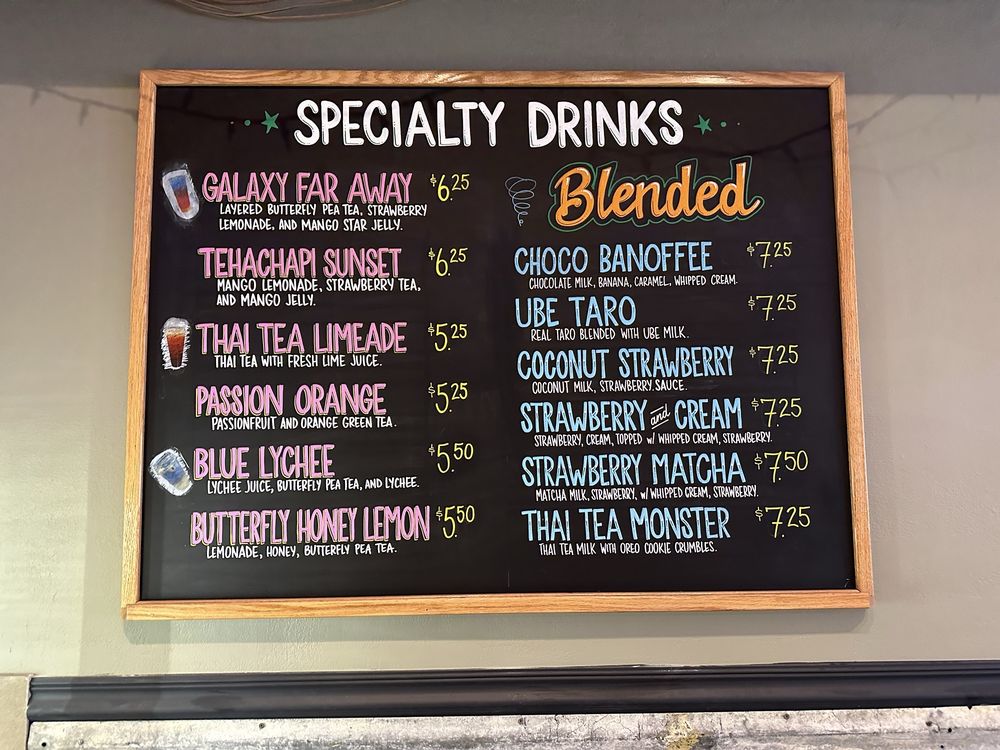 SPECIALTY DRINKS
GALAXY FAR AWAY $6.25
LAYERED BUTTERFLY PEA TEA, STRAWBERRY
LEMONADE, AND MANGO STAR JELLY.
TEHACHAPI SUNSET $6.25
MANGO LEMONADE, STRAWBERRY TEA,
AND MANGO JELLY.
THAI TEA LIMEADE $5.25
THAI TEA WITH FRESH LIME JUICE.
PASSION ORANGE $5.25
PASSIONFRUIT AND ORANGE GREEN TEA.
BLUE LYCHEE $5.50
LYCHEE JUICE, BUTTERFLY PEA TEA, AND LYCHEE.
BUTTERFLY HONEY LEMON $5.50
LEMONADE, HONEY, BUTTERFLY PEA TEA.
Blended
CHOCO BANOFFEE $7.25
CHOCOLATE MILK, BANANA, CARAMEL, WHIPPED CREAM.
UBE TARO $7.25
REAL TARO BLENDED WITH UBE MILK.
COCONUT STRAWBERRY $7.25
COCONUT MILK, STRAWBERRY SAUCE.
STRAWBERRY and CREAM $7.25
STRAWBERRY, CREAM, TOPPED w/ WHIPPED CREAM, STRAWBERRY.
STRAWBERRY MATCHA $7.50
MATCHA MILK, STRAWBERRY, w/ WHIPPED CREAM, STRAWBERRY.
THAI TEA MONSTER $7.25
THAI TEA MILK WITH OREO COOKIE CRUMBLES.